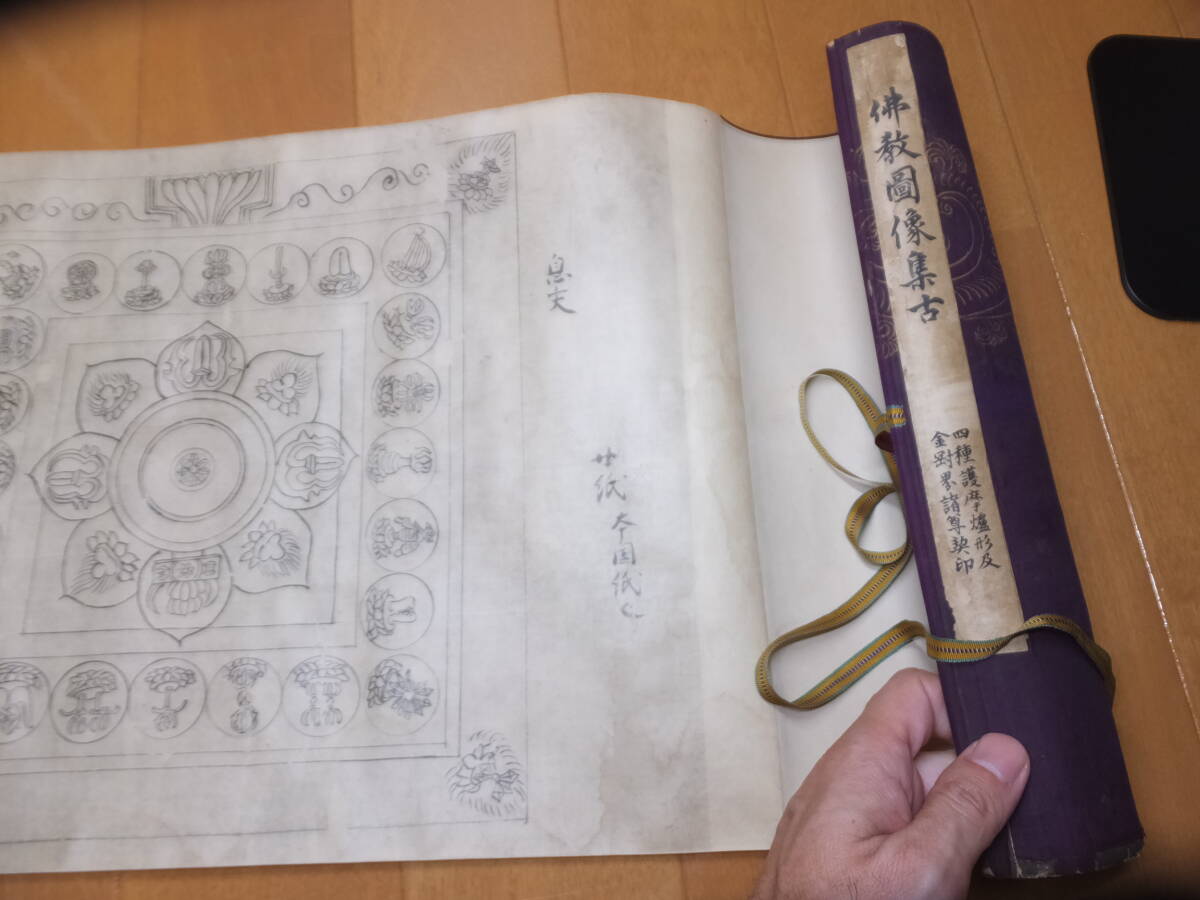 佛教圖像集古
四種護摩爐形及
金剛界諸尊契印
息災
廿紙 本国紙